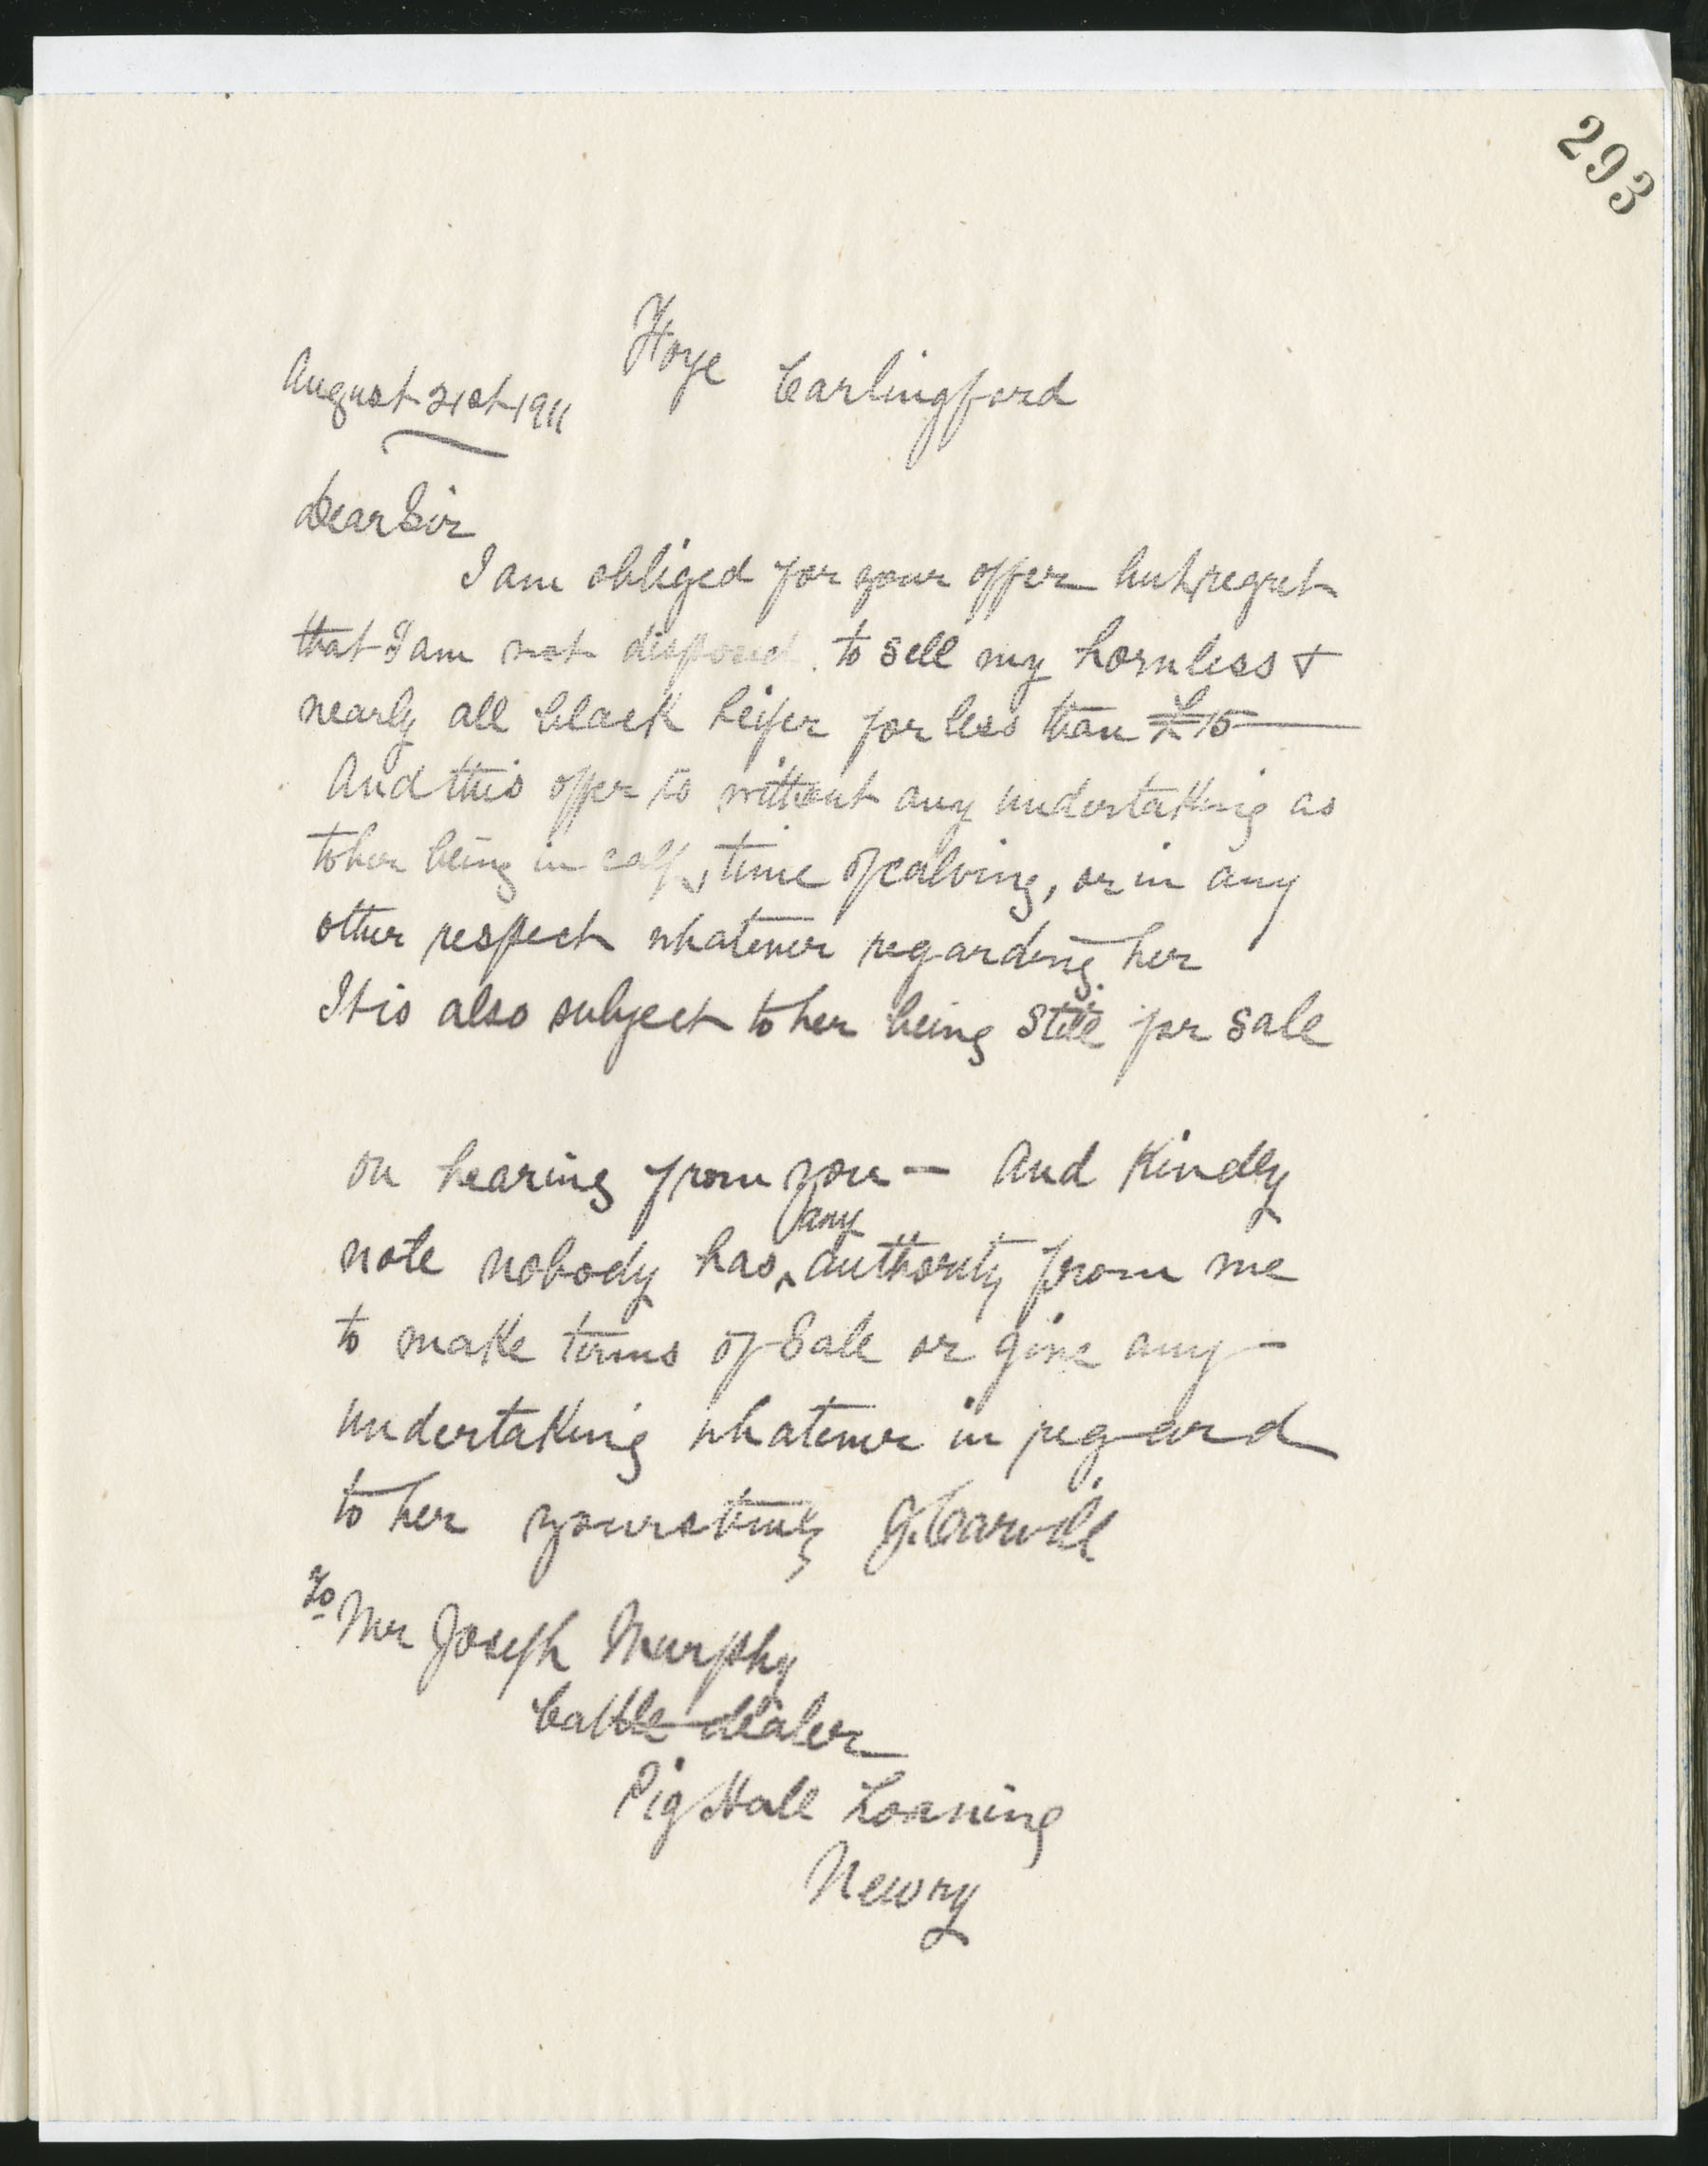 293
Hoye Carlingford
August 21st 1911
Dear Sir
I am obliged for your offer but regret
that I am not disposed to sell my hornless +
nearly all black heifer for less than £15
And this offer is without any undertaking as
to her being in calf, time of calving, or in any
other respect whatever regarding her
It is also subject to her being still for sale
on hearing from you — And Kindly
note nobody has any authority from me
to make terms of Sale or give any
undertaking whatever in regard
to her yours truly J. Carvill
To Mr Joseph Murphy
Cattle dealer
Pig Hall Loaning
Newry